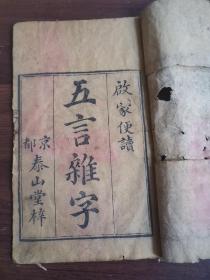 啟家便讀
五言雜字
京都泰山堂梓